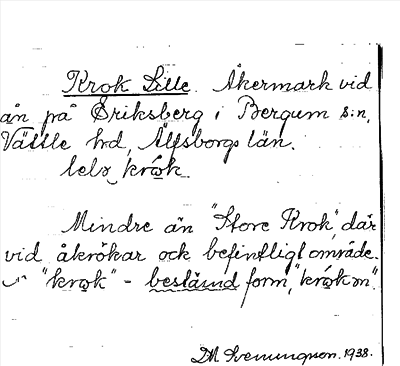 Krok Lille. Åkermark vid
ån på Eriksberg i Bergum s:n,
Vättle hrd, Älfsborgs län.
krok.
Mindre än "Store Krok", där
vid åkrökar och befintligt område.
"krok" - bestämd form,
DM Svenungson. 1938.